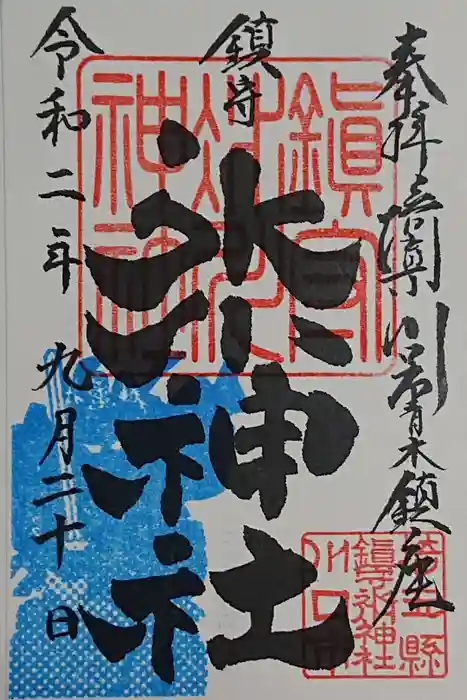 奉拝
川口青木鎮座
鎮守
氷川神社
令和二年九月二十日
鎮守
氷川
神社
埼玉縣
鎮守氷川神社
川口市